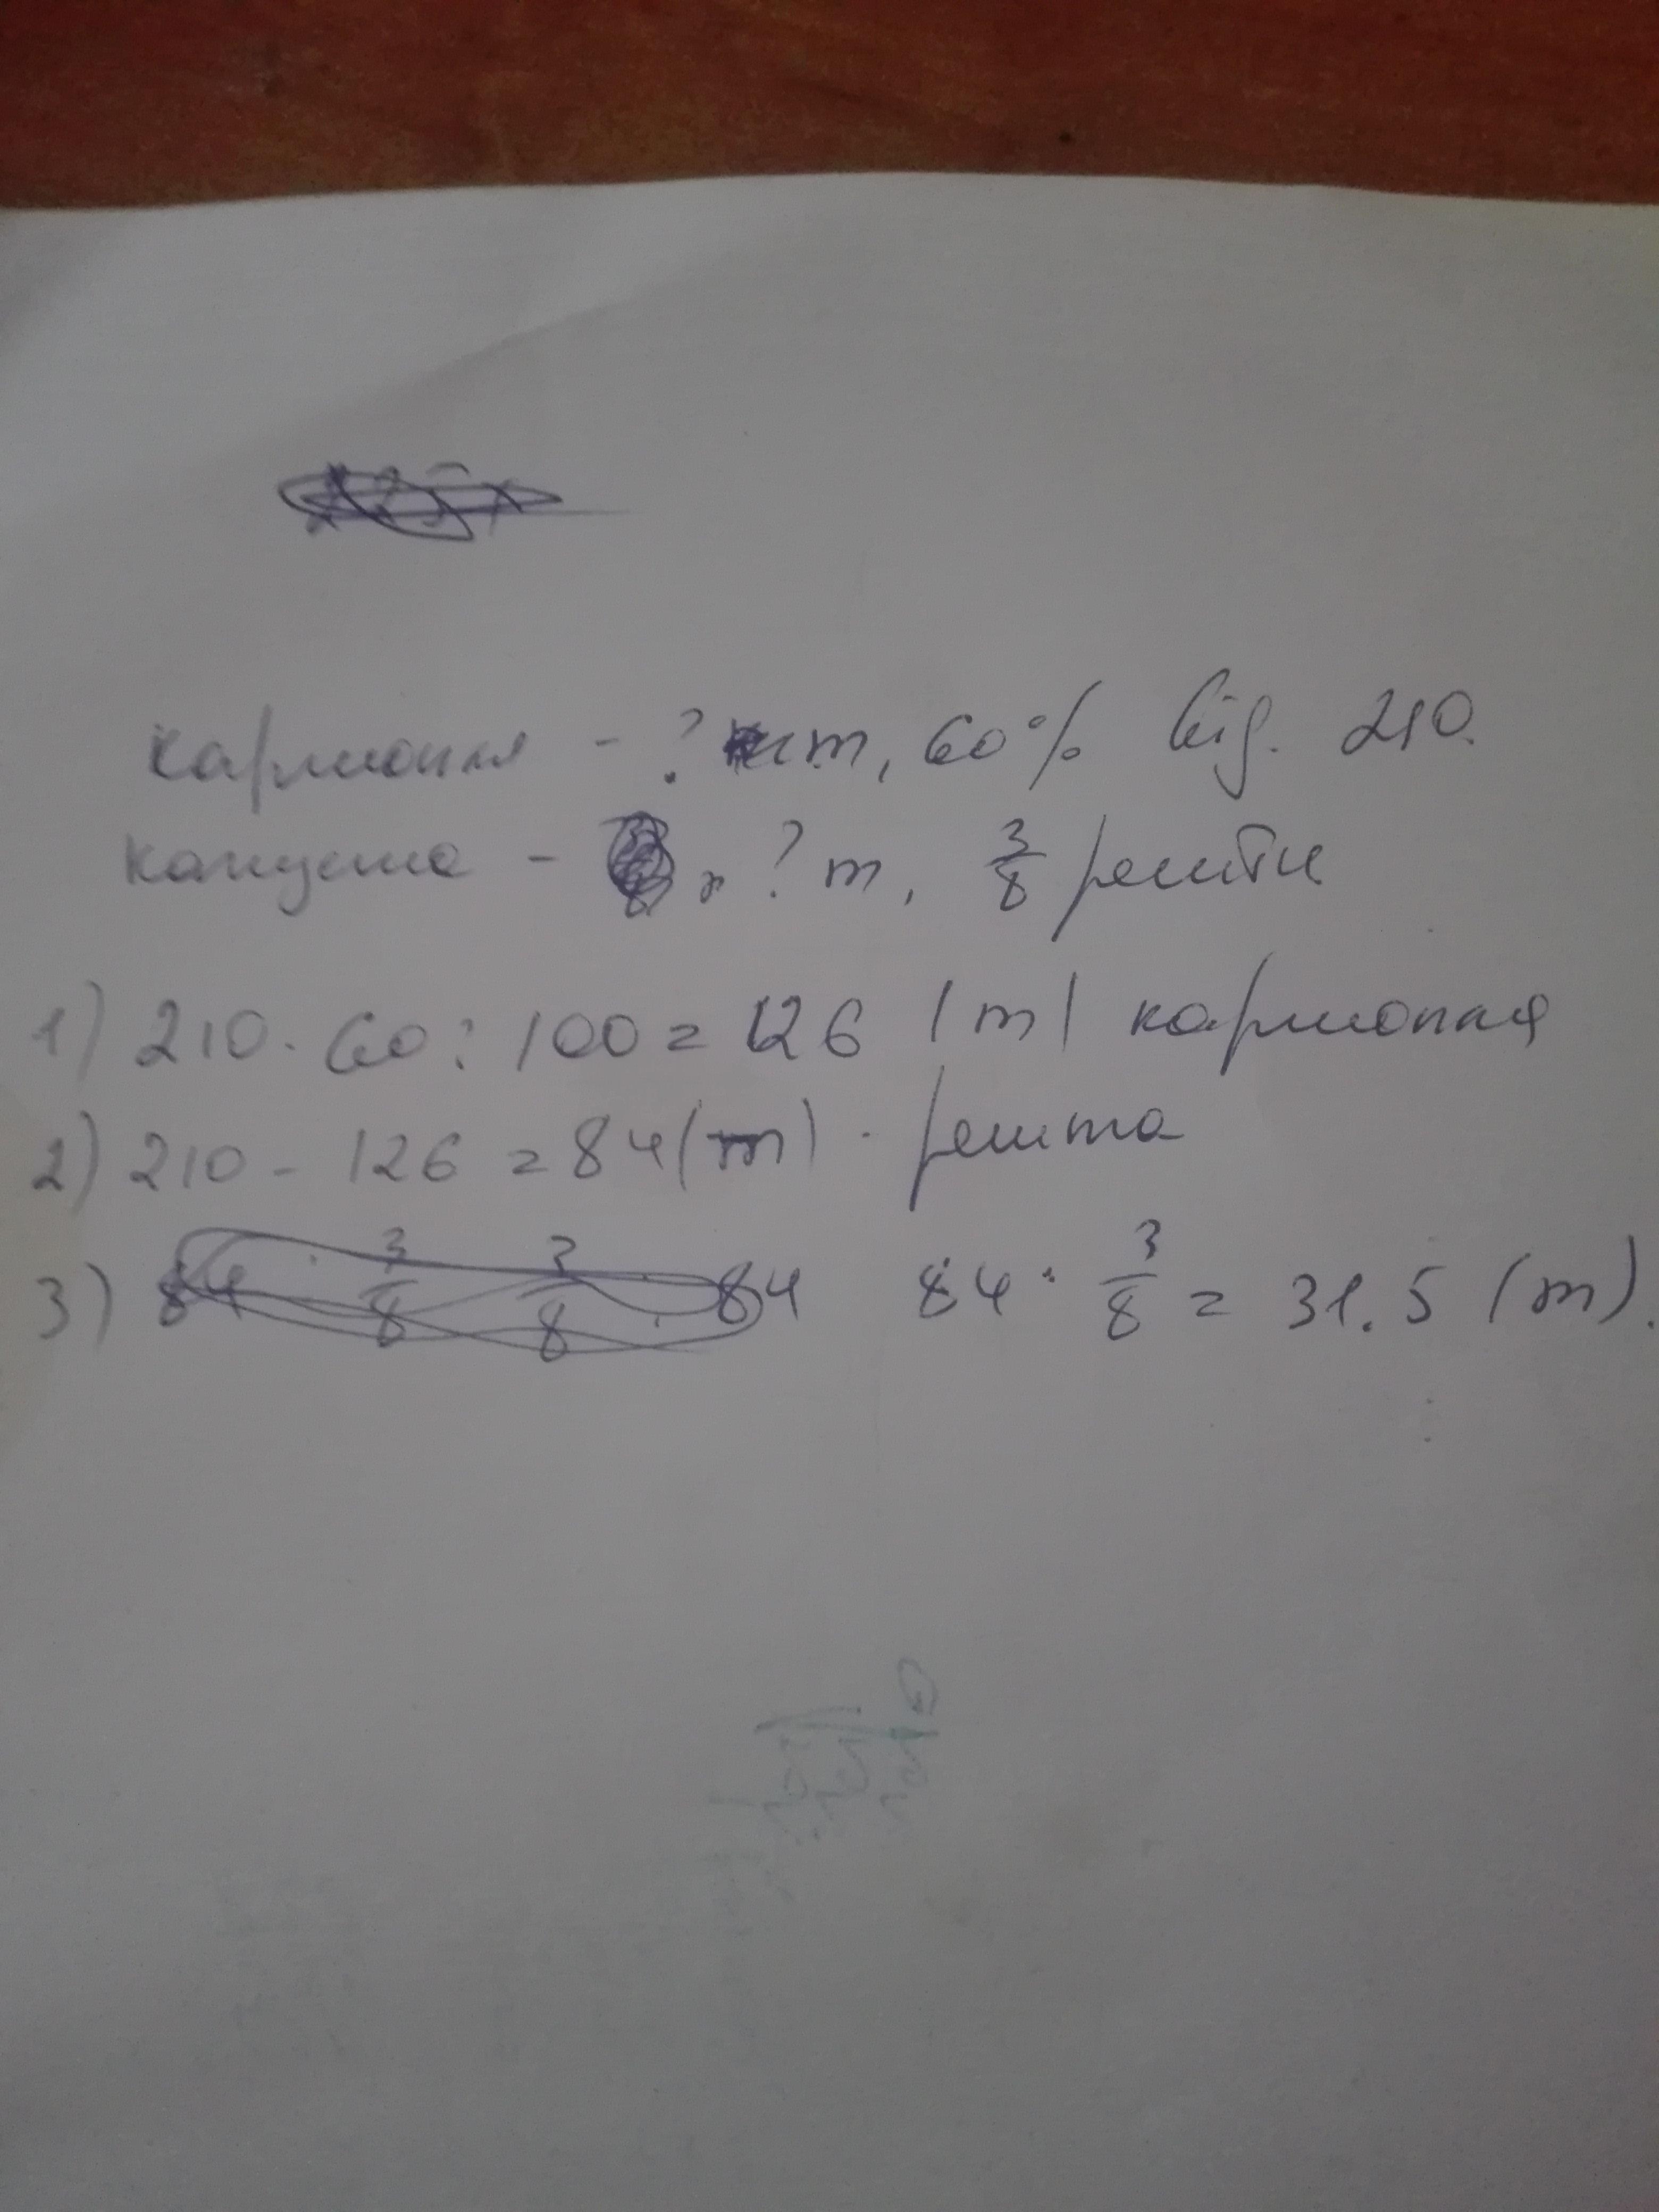 картопля - ? т, 60% від. 210.
капуста - ? т, 3/8 решти
1) 210 · 60 : 100 = 126 (т) картопля
2) 210 - 126 = 84 (т) - решта
3) 84 · 3/8 = 31.5 (т).